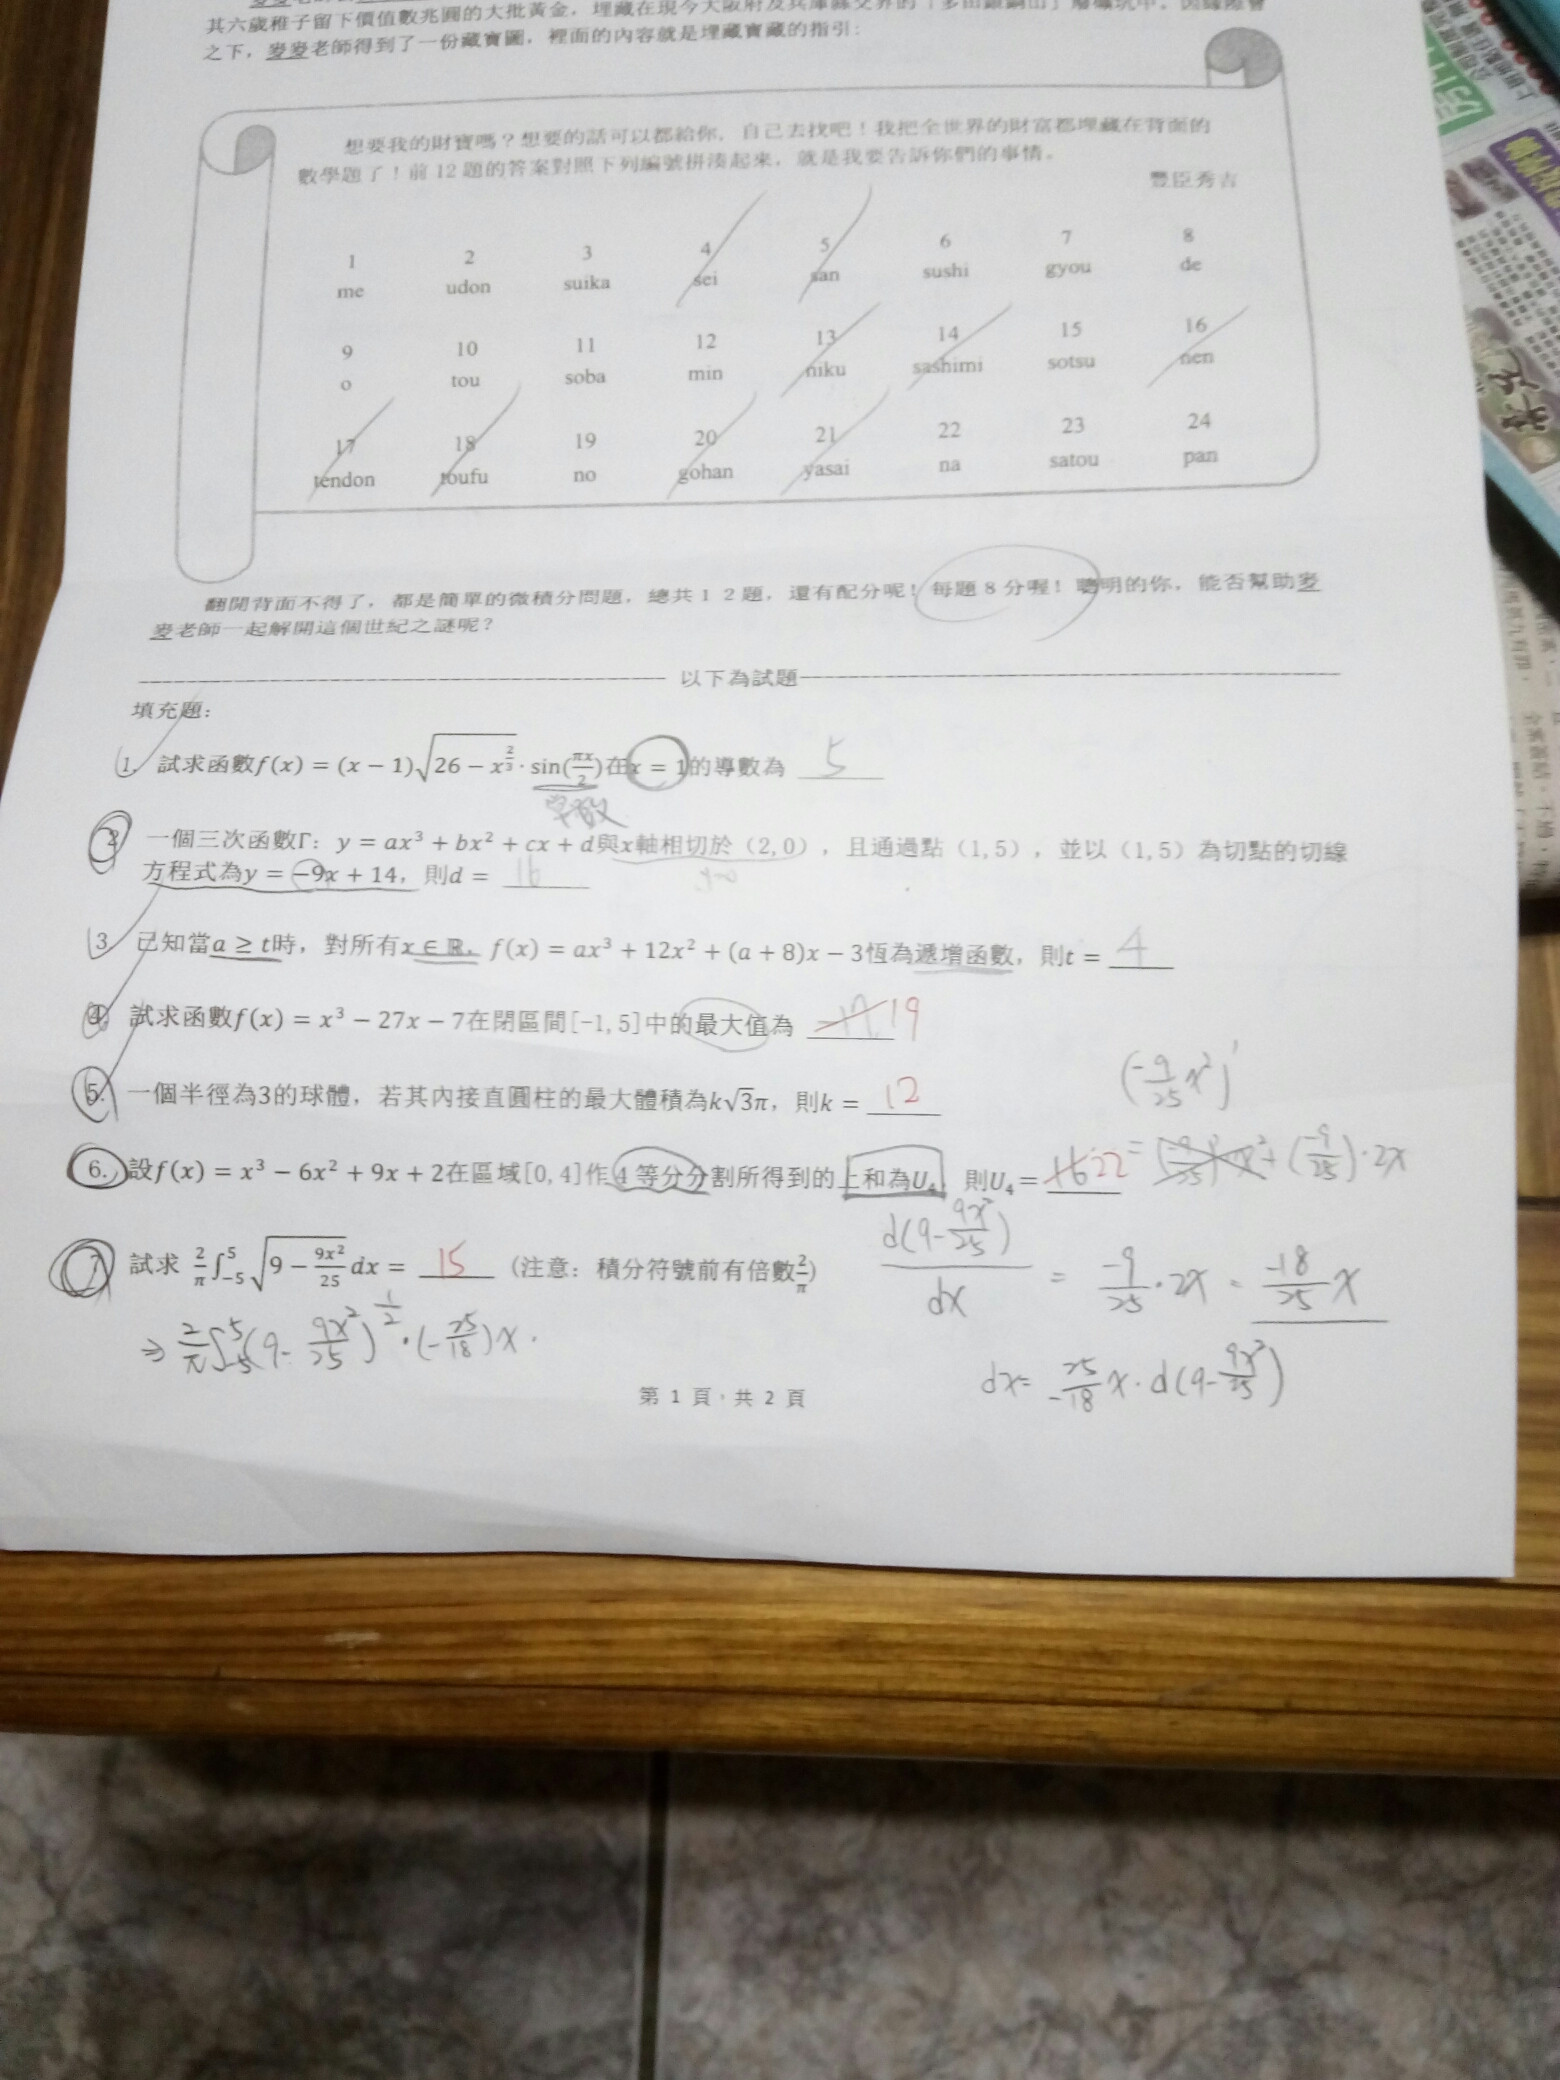 其六歲稚子留下價值數兆圓的大批黃金，埋藏在現今大阪府及兵庫縣交界的「多田銀銅山」廢礦坑中。因緣際會
之下，麥麥老師得到了一份藏寶圖，裡面的內容就是埋藏寶藏的指引：
想要我的財寶嗎？想要的話可以都給你，自己去找吧！我把全世界的財富都埋藏在背面的
數學題了！前12題的答案對照下列編號拼湊起來，就是我要告訴你們的事情。
豐臣秀吉
1 2 3 4 5 6 7 8
me udon suika sei san sushi gyou de
9 10 11 12 13 14 15 16
o tou soba min niku sashimi sotsu nen
17 18 19 20 21 22 23 24
tendon toufu no gohan yasai na satou pan
翻開背面不得了，都是簡單的微積分問題，總共12題，還有配分呢！每題8分喔！聰明的你，能否幫助麥
麥老師一起解開這個世紀之謎呢？
以下為試題
填充題：
1. 試求函數f(x) = (x − 1)√(26 − x^(2/3)) · sin(πx/2)在x = 1的導數為 5
常數
2. 一個三次函數Γ：y = ax³ + bx² + cx + d與x軸相切於（2,0），且通過點（1,5），並以（1,5）為切點的切線
方程式為y = −9x + 14，則d = 16
y=0
3. 已知當a ≥ t時，對所有x ∈ ℝ，f(x) = ax³ + 12x² + (a + 8)x − 3恆為遞增函數，則t = 4
4. 試求函數f(x) = x³ − 27x − 7在閉區間[−1,5]中的最大值為 19
5. 一個半徑為3的球體，若其內接直圓柱的最大體積為k√3π，則k = 12
(-9/25 x²)'
6. 設f(x) = x³ − 6x² + 9x + 2在區域[0,4]作4等分分割所得到的上和為U₄，則U₄ = 16 22
= + (-9/25)·2x
7. 試求 2/π ∫₋₅⁵ √(9 − 9x²/25) dx = 15 （注意：積分符號前有倍數2/π）
d(9-9x²/25)/dx = -9/25·2x = -18/25 x
⇒ 2/π ∫₋₅⁵ (9-9x²/25)^(1/2)·(-25/18)x·
dx= 25/-18 x·d(9-9x²/25)
第 1 頁，共 2 頁